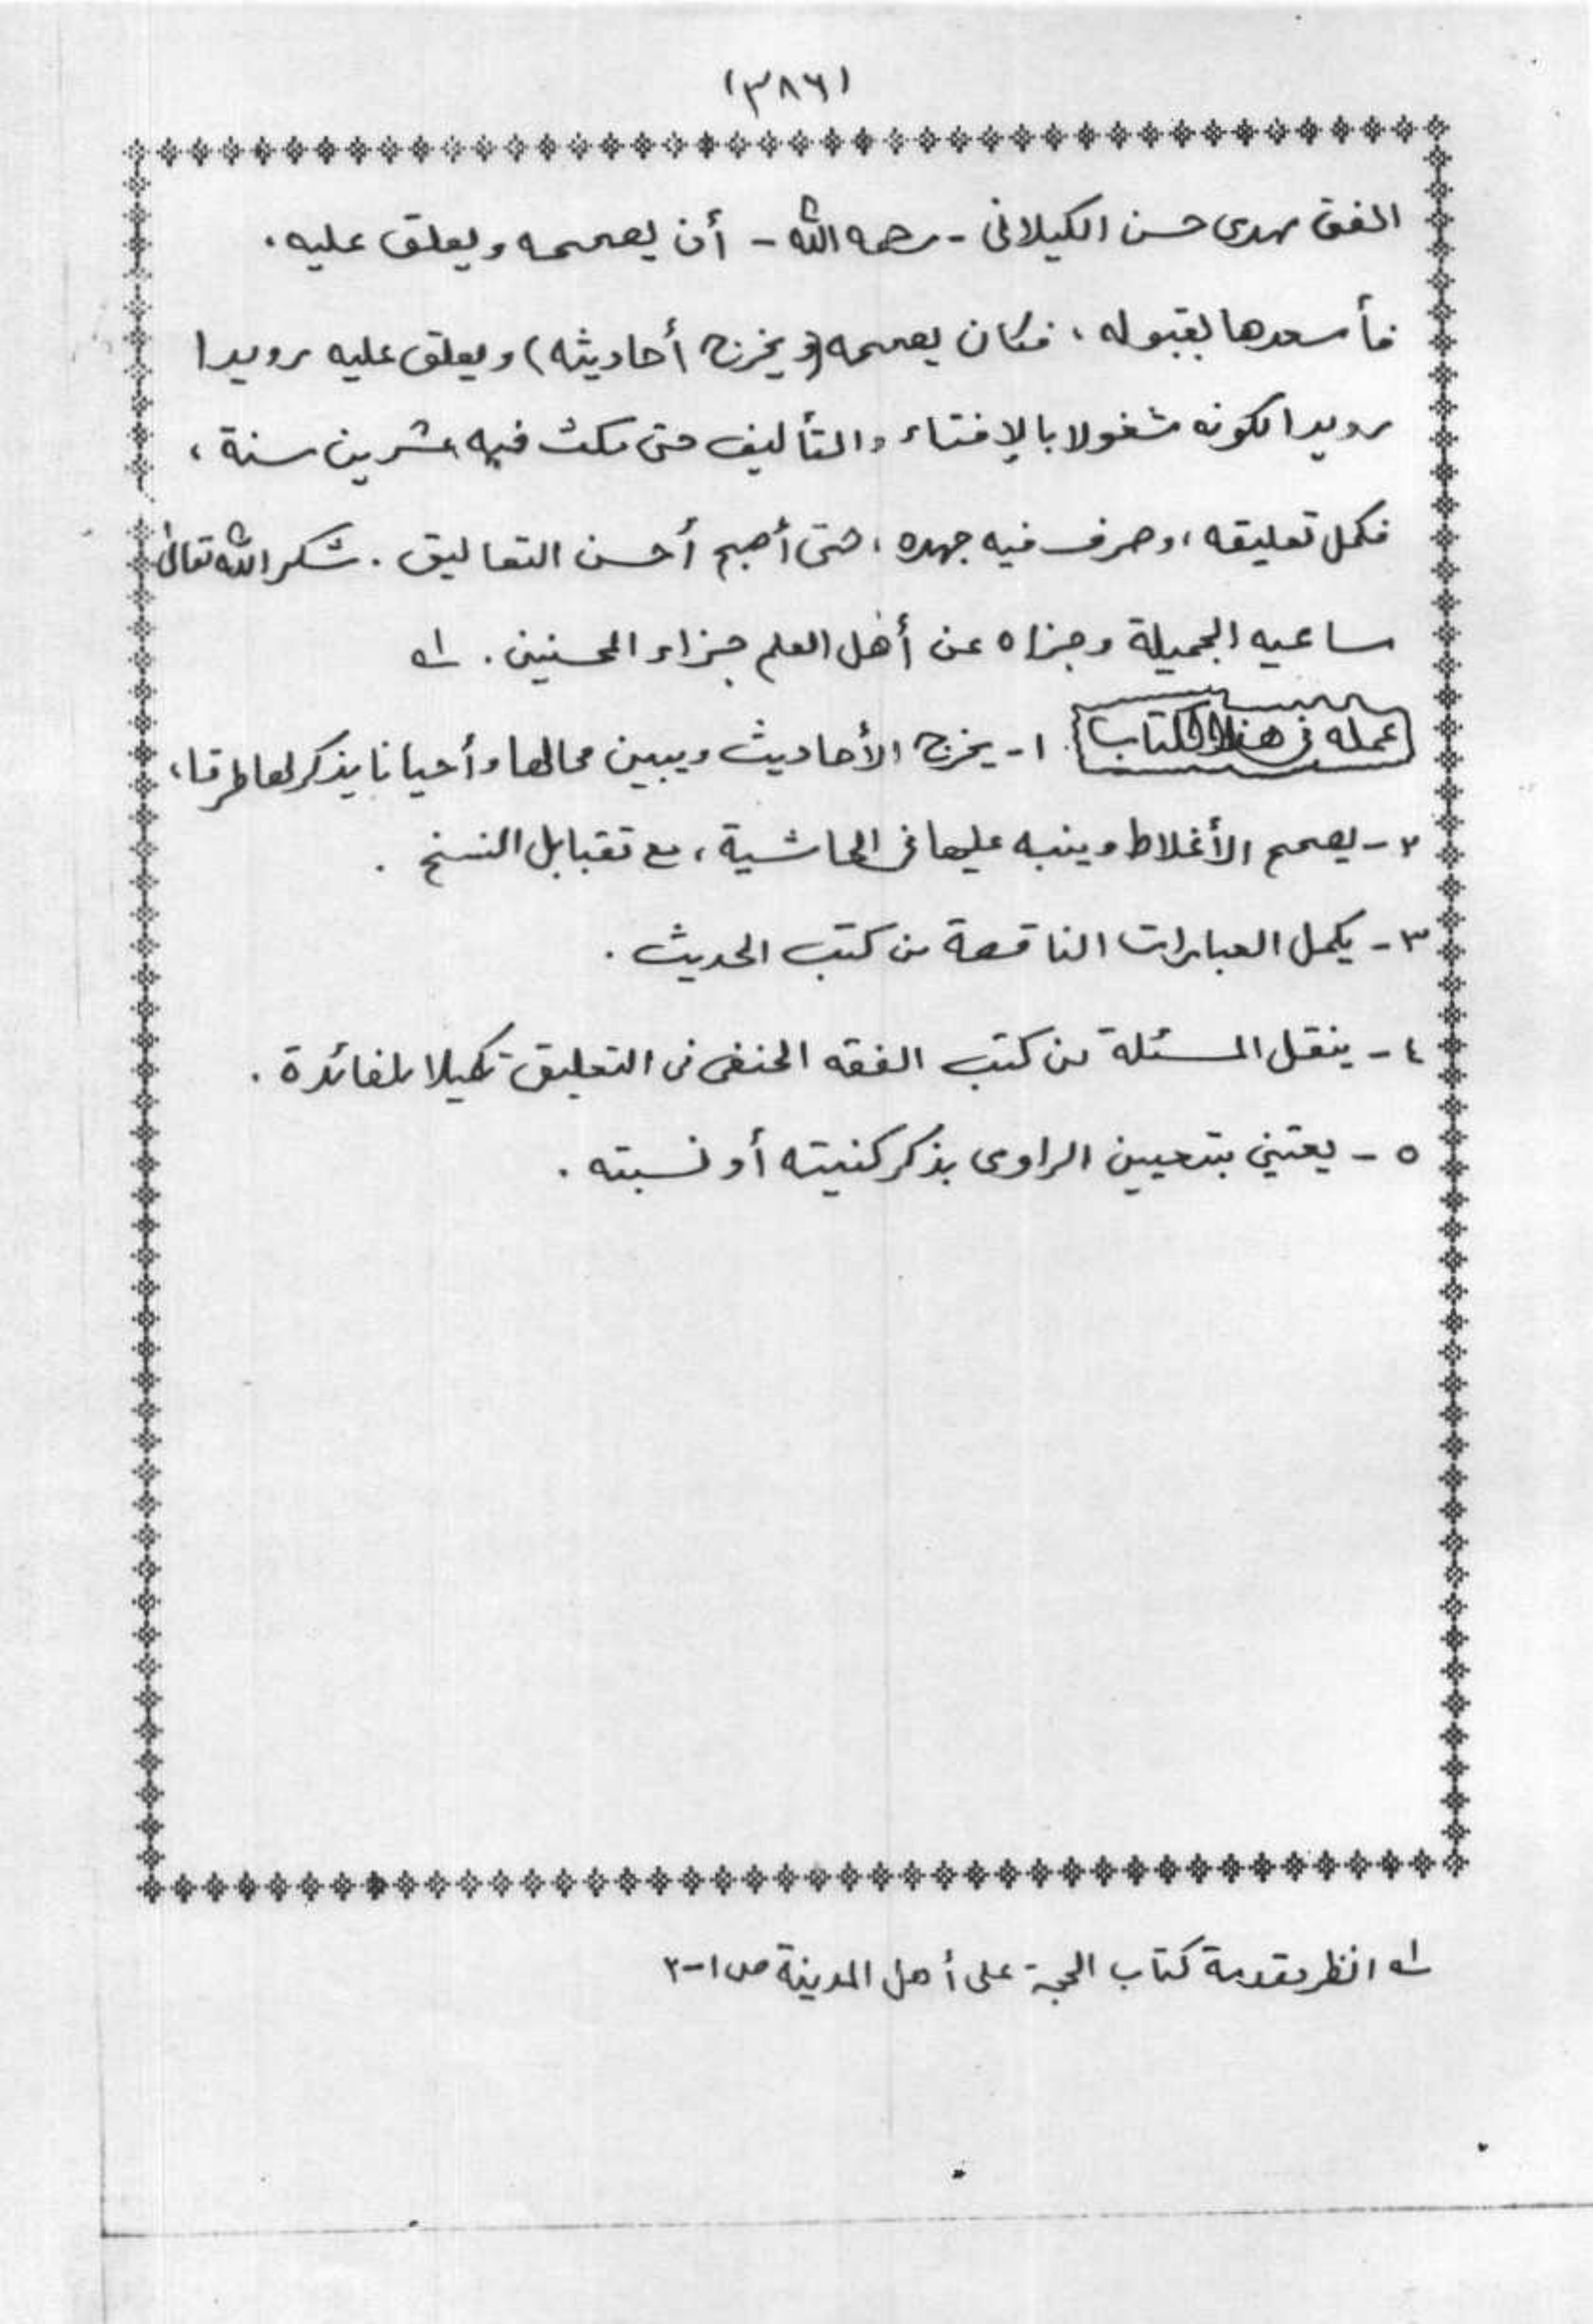 (٣٨٦)
المفتى مهدى حسن الكيلانى - رحمه الله - أن يصححه ويعلق عليه .
فأسعدها بقبوله ، فكان يصححه (ويخرج أحاديثه) ويعلق عليه رويدا
رويدا لكونه مشغولا بالإفتاء والتأليف حتى مكث فيه عشرين سنة ،
فكمل تعليقه ، وصرف فيه جهده ، حتى أصبح أحسن التعاليق . شكر الله تعالى
مساعيه الجميلة وجزاه عن أهل العلم جزاء المحسنين . له
عمله فى هذا الكتاب ١ - يخرج الأحاديث ويبين محالها وأحيانا يذكر لها طرقا ،
٢ - يصحح الأغلاط وينبه عليها فى الحاشية ، مع تقابل النسخ .
٣ - يكمل العبارات الناقصة من كتب الحديث .
٤ - ينقل المسئلة من كتب الفقه الحنفى فى التعليق تكميلا للفائدة .
٥ - يعتني بتعيين الراوى بذكر كنيته أو نسبته .
له انظر مقدمة كتاب الحجة على أهل المدينة ص ١-٣